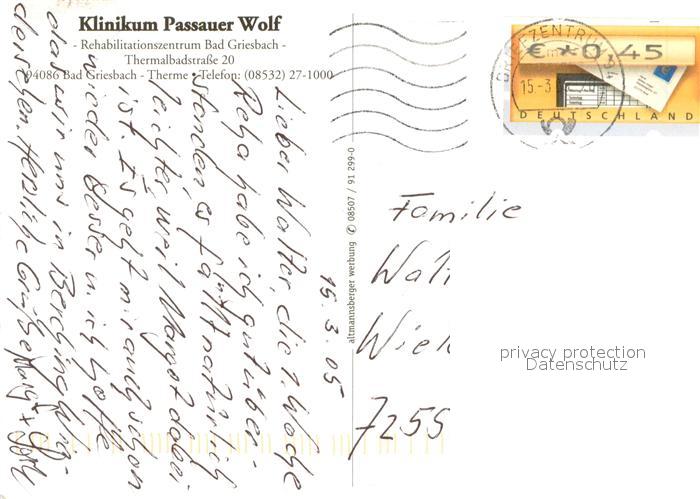 Klinikum Passauer Wolf
- Rehabilitationszentrum Bad Griesbach -
Thermalbadstraße 20
94086 Bad Griesbach - Therme • Telefon: (08532) 27-1000
15.3.05
Lieber Walter, die 1. Woche
Reha habe ich gut über-
standen, es fällt natürlich
leichter, weil Margot dabei
ist. Es geht mir auch schon
wieder besser u. ich hoffe
daß wir uns in
dersehen. Herzliche Grüße Margot +
altmannsberger werbung ✆ 08507 / 91 299-0
BRIEFZENTRUM 94
15-3
€ *0,45
DEUTSCHLAND
Familie
Walt
Wiel
7255
privacy protection
Datenschutz